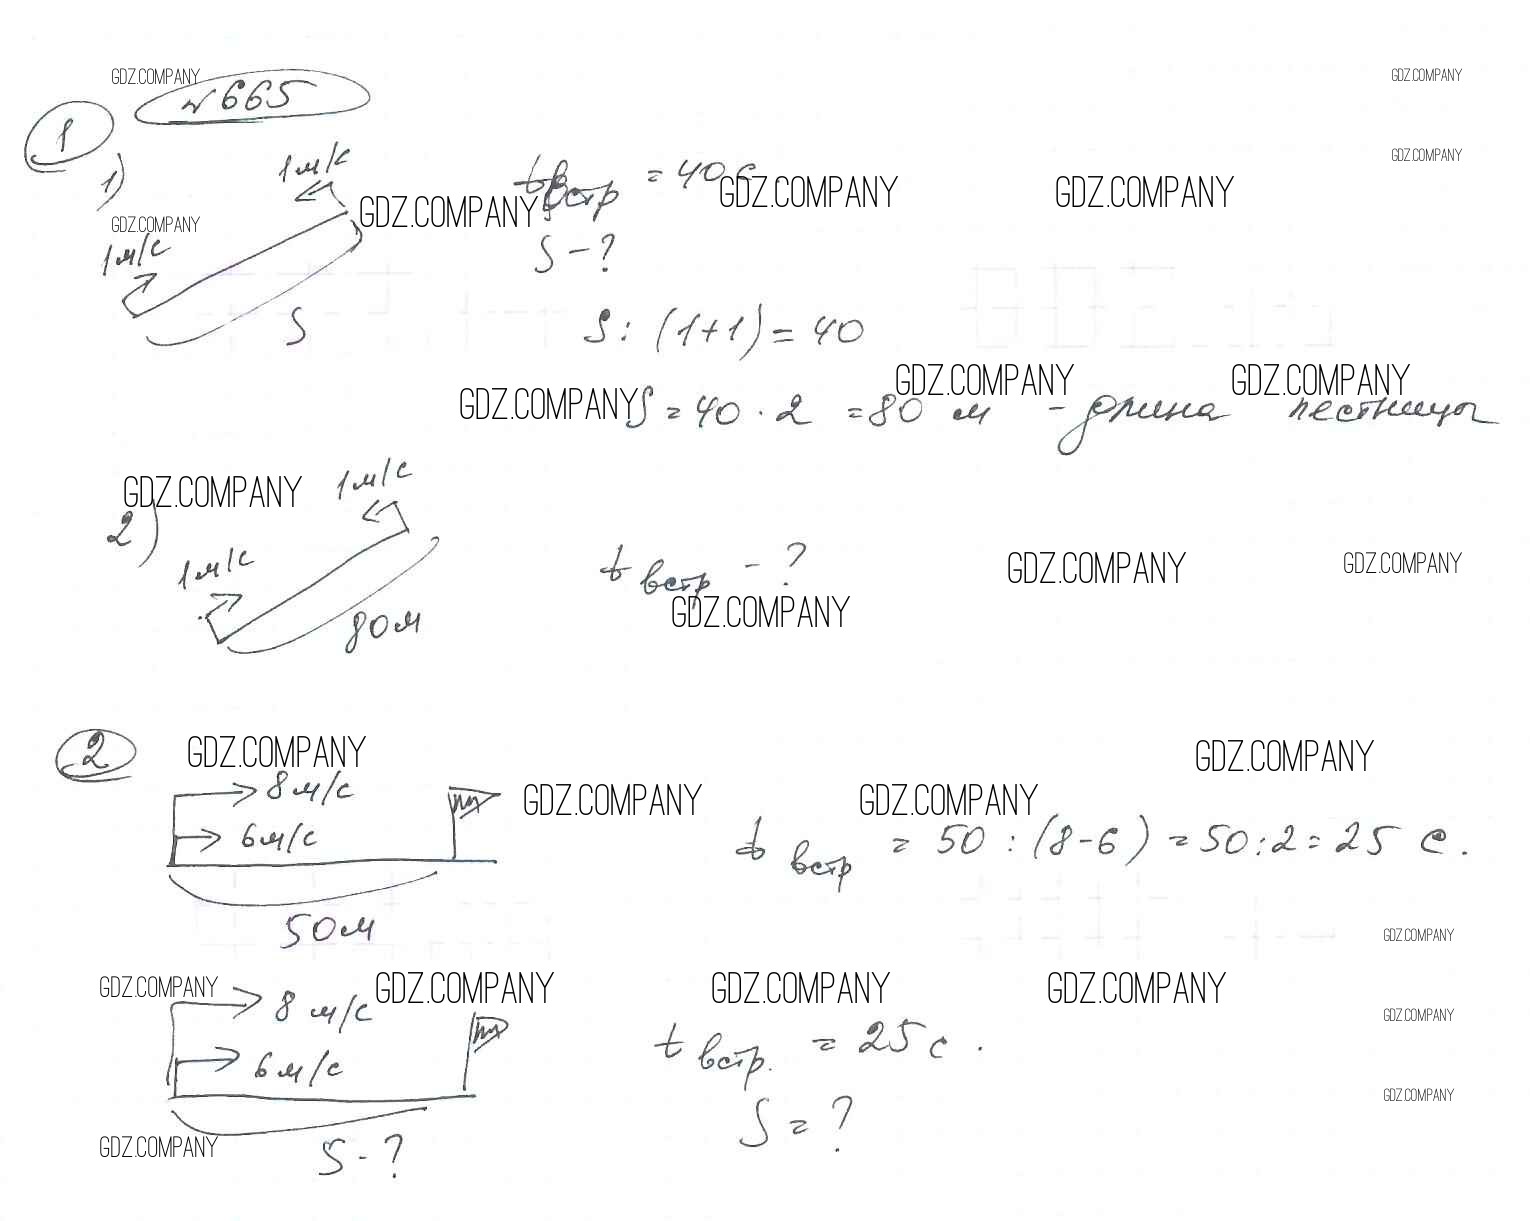 GDZ.COMPANY GDZ.COMPANY
№665
1
1) 1м/с tвстр = 40 с
GDZ.COMPANY
GDZ.COMPANY GDZ.COMPANY GDZ.COMPANY GDZ.COMPANY
1м/с S - ?
S S : (1+1) = 40
GDZ.COMPANY GDZ.COMPANY GDZ.COMPANY
S = 40 · 2 = 80 м - длина лестницы
GDZ.COMPANY 1м/с
2)
1м/с tвстр - ? GDZ.COMPANY GDZ.COMPANY
GDZ.COMPANY
80м
2 GDZ.COMPANY GDZ.COMPANY
8м/с GDZ.COMPANY GDZ.COMPANY
6м/с tвстр = 50 : (8-6) = 50:2 = 25 с.
50м GDZ.COMPANY
GDZ.COMPANY GDZ.COMPANY GDZ.COMPANY GDZ.COMPANY
8 м/с GDZ.COMPANY
6м/с tвстр. = 25 с.
GDZ.COMPANY
S = ?
GDZ.COMPANY S - ?